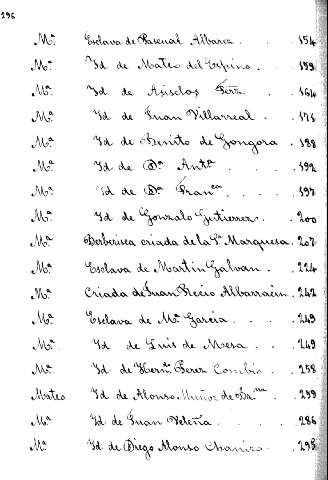 296
M.ª Esclava de Pascual Albarez. 154
M.ª Yd de Mateo del Espino. 159
M.ª Yd de Asisclos Ferz 164
M.ª Yd de Juan Villarreal. 175
M.ª Yd de Benito de Gongora. 188
M.ª Yd de D.ª Ant.ª 192
M.ª Yd de D.ª Fran.ca 197
M.ª Yd de Gonzalo Gutierrez. 200
M.ª Berberisca criada de la S.ª Marquesa. 207
M.ª Esclava de Martin Galvan. 224
M.ª Criada de Juan Recio Albarracin. 242
M.ª Esclava de M.ª Garcia. 249
M.ª Yd de Luis de Mesa. 249
M.ª Yd de Hern.º Perez Combio. 258
Mateo Yd de Alonso Muñoz de 299
M.ª Yd de Juan Veleña. 286
M.ª Yd de Diego Alonso 295